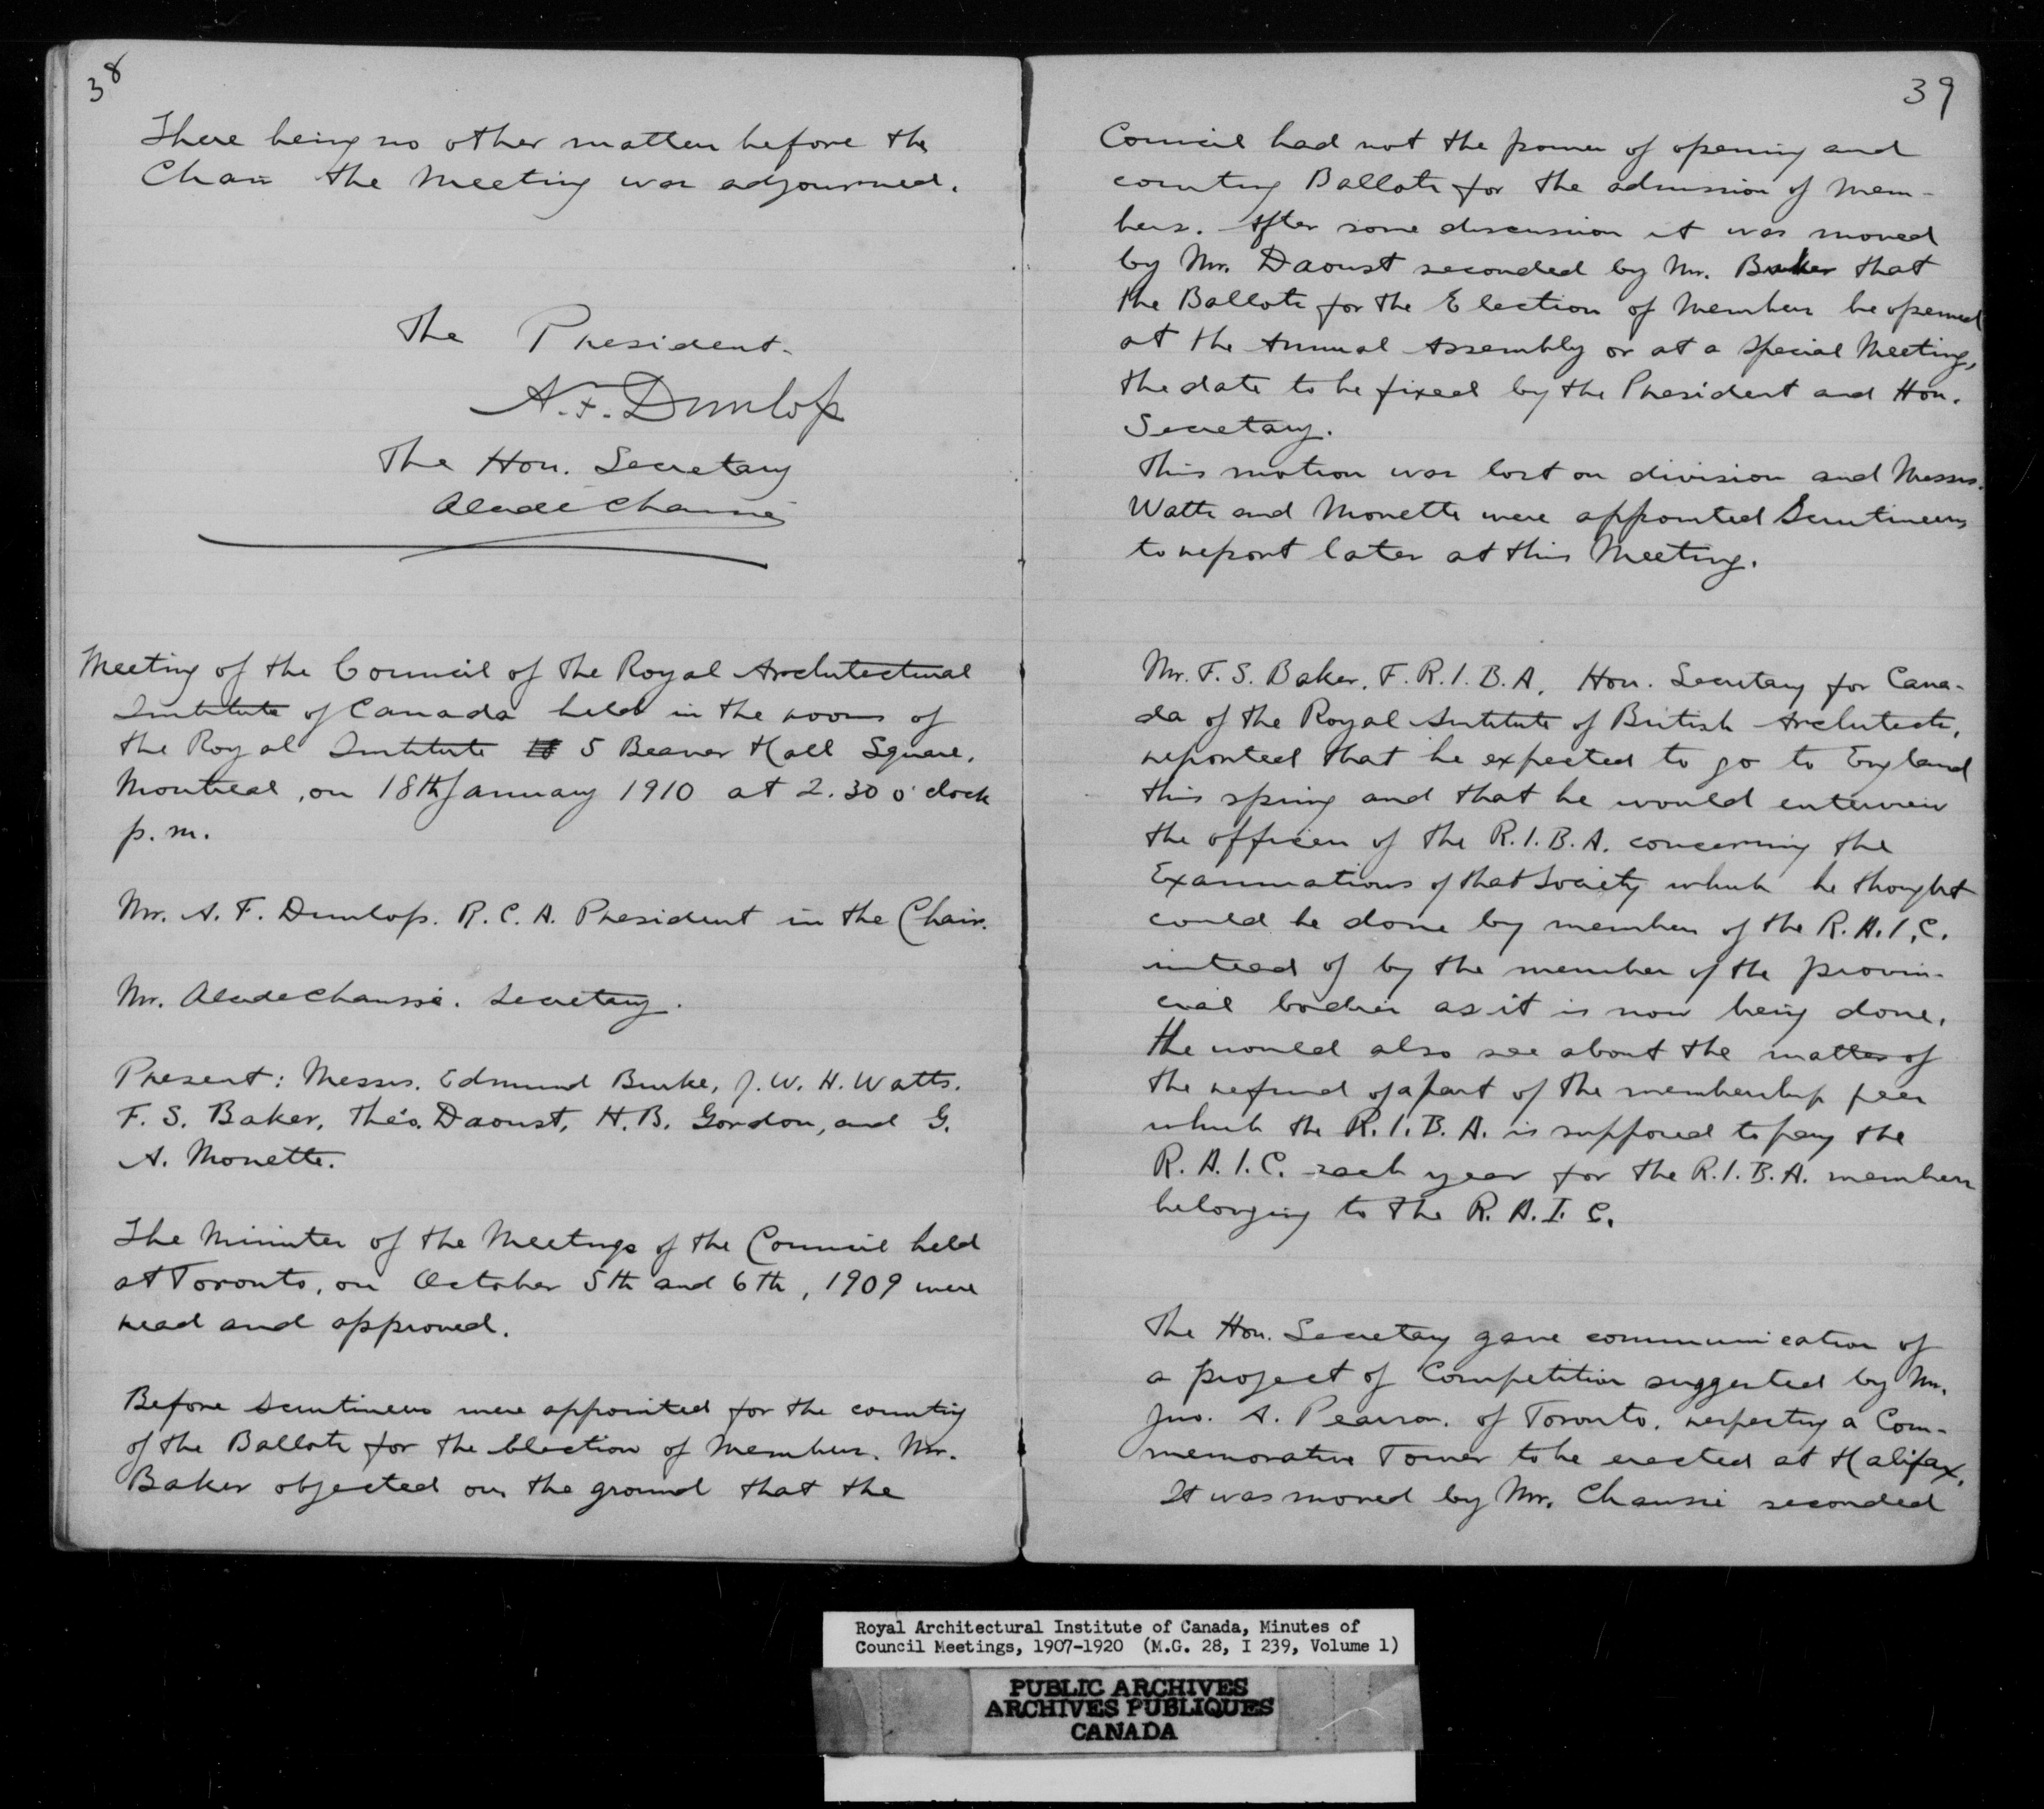 38
There being no other matter before the
Chair the Meeting was adjourned.
The President.
A. F. Dunlop
The Hon. Secretary
Alcide Chaussé
Meeting of the Council of the Royal Architectural
Institute of Canada held in the rooms of
the Royal Institute 5 Beaver Hall Square,
Montreal, on 18th January 1910 at 2.30 o'clock
p. m.
Mr. A. F. Dunlop. R. C. A. President in the Chair.
Mr. Alcide Chaussé. Secretary.
Present: Messrs. Edmund Burke, J. W. H. Watts.
F. S. Baker, Théo. Daoust, H. B. Gordon, and G.
A. Monette.
The Minutes of the Meetings of the Council held
at Toronto, on October 5th and 6th, 1909 were
read and approved.
Before Scrutineers were appointed for the counting
of the Ballots for the Election of Members. Mr.
Baker objected on the ground that the
39
Council had not the power of opening and
counting Ballots for the admission of Mem-
bers. After some discussion it was moved
by Mr. Daoust seconded by Mr. Baker that
the Ballots for the Election of Members be opened
at the Annual Assembly or at a Special Meeting,
the date to be fixed by the President and Hon.
Secretary.
This motion was lost on division and Messrs.
Watts and Monette were appointed Scrutineers
to report later at this Meeting.
Mr. F. S. Baker. F. R. I. B. A. Hon. Secretary for Cana-
da of the Royal Institute of British Architects,
reported that he expected to go to England
this spring and that he would interview
the officers of the R. I. B. A. concerning the
Examinations of that Society which he thought
could be done by members of the R. A. I. C.
instead of by the member of the provin-
cial bodies as it is now being done.
He would also see about the matter of
the refund of a part of the membership fees
which the R. I. B. A. is supposed to pay the
R. A. I. C. each year for the R. I. B. A. members
belonging to the R. A. I. C.
The Hon. Secretary gave communication of
a project of Competition suggested by Mr.
Jno. A. Pearson. of Toronto. respecting a Com-
memorative Tower to be erected at Halifax.
It was moved by Mr. Chaussé seconded
Royal Architectural Institute of Canada, Minutes of
Council Meetings, 1907-1920 (M.G. 28, I 239, Volume 1)
PUBLIC ARCHIVES
ARCHIVES PUBLIQUES
CANADA